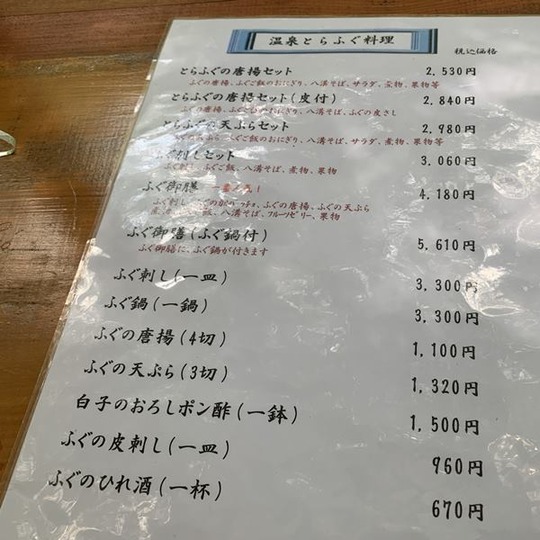 温泉とらふぐ料理
税込価格
とらふぐの唐揚セット 2,530円
ふぐの唐揚、ふぐご飯のおにぎり、八溝そば、サラダ、煮物、果物等
とらふぐの唐揚セット(皮付) 2,840円
ふぐの唐揚、おにぎり、八溝そば、ふぐの皮さし
とらふぐの天ぷらセット 2,980円
ふぐご飯のおにぎり、八溝そば、サラダ、煮物、果物等
刺しセット 3,060円
ふぐご飯、八溝そば、煮物、果物
ふぐ御膳 4,180円
ふぐの唐揚、ふぐの天ぷら
八溝そば、フルーツゼリー、果物
ふぐ御膳(ふぐ鍋付) 5,610円
ふぐ御膳に、ふぐ鍋が付きます
ふぐ刺し(一皿) 3,300円
ふぐ鍋(一鍋) 3,300円
ふぐの唐揚(4切) 1,100円
ふぐの天ぷら(3切) 1,320円
白子のおろしポン酢(一鉢) 1,500円
ふぐの皮刺し(一皿) 960円
ふぐのひれ酒(一杯) 670円